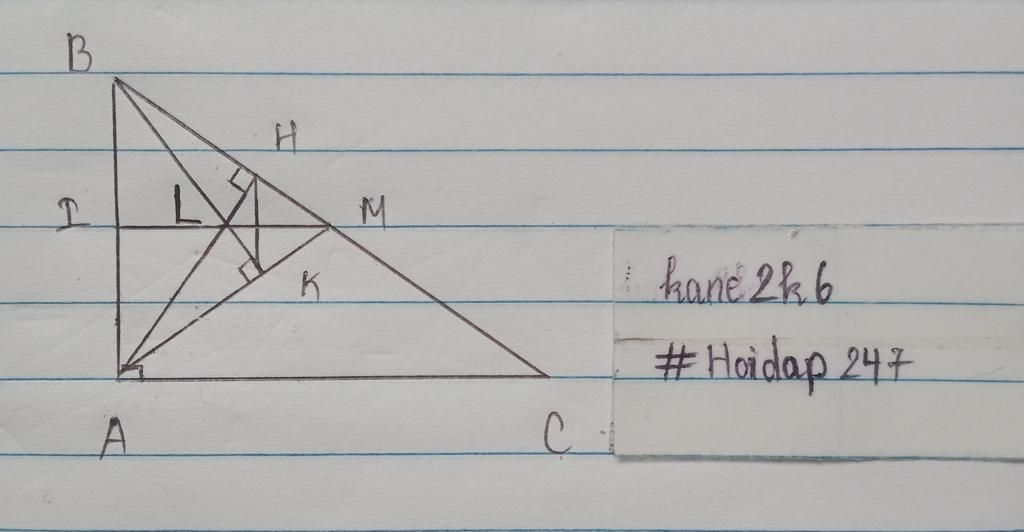 B
H
I
L
M
K
A
C
kane 2k6
# Hoidap 247